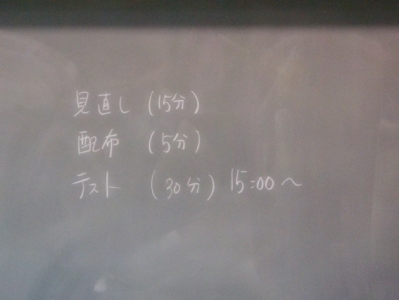 見直し (15分)
配布 (5分)
テスト (30分) 15:00～